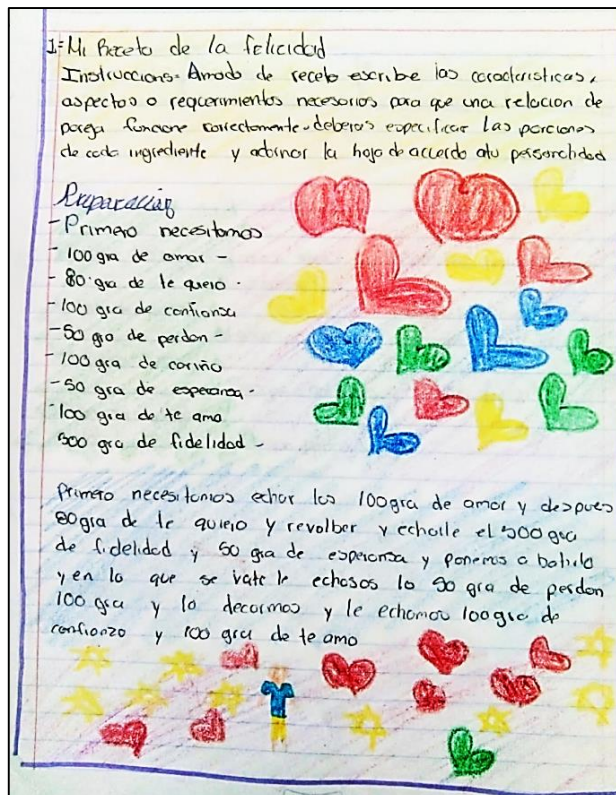 1=Mi Receta de la felicidad
Instruccions= Amodo de receta escribe las caracteristicas,
aspectos o requerimientos necesarios para que una relacion de
pareja funcione correctamente-deberas especificar Las porciones
de cada ingrediente y adornar la hoja de accordo atu personalidad
Preparación
-Primero necesitamos
-100 gra de amar -
-80 gra de te quero.
-100 gra de confianza
-50 gra de perdon -
-100 gra de cariño
-50 gra de esperansa.
-100 gra de te amo
500 gra de fidelidad -
Primero necesitamos echar los 100gra de amor y despues
80gra de te quiero y revolber y echarle el 500 gra
de fidelidad y 50 gra de esperansa y ponemos a
y en lo que se vate le echasos lo 50 gra de perdon
100 gra y lo decormos y le echamos 100 gra de
confianzo y 100 gra de te amo